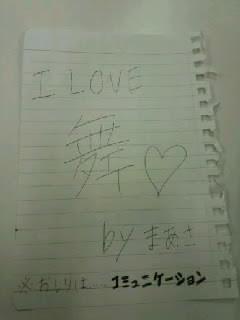 I LOVE
舞♡
by まあさ
※おしりは……コミュニケーション